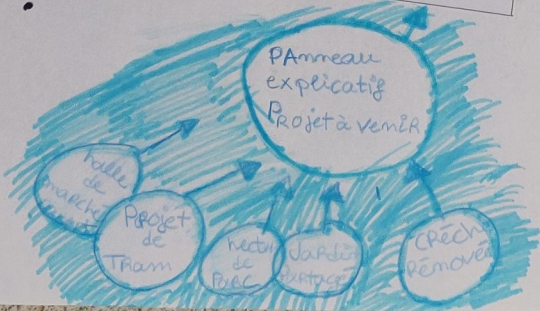 PAnneau
explicatif
PRojet à veniR
halle
de
marché
PRojet
de
TRam
hectare
de
PaRC
JaRdin
PaRtagé
CRèche
Rénovée